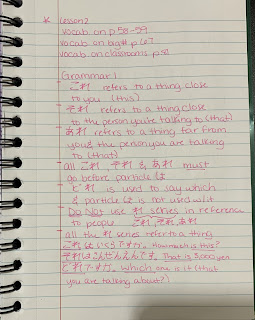 * Lesson 2
vocab on p 58-59
vocab on big# p 67
vocab on classrooms p 81
Grammar 1
- これ refers to a thing close
to you (this)
- それ refers to a thing close
to the person you're talking to (that)
- あれ refers to a thing far from
you & the person you are talking
to (that)
- all これ, それ & あれ must
go before particle は
- どれ is used to say which
& particle は is not used w/ it
- Do Not use れ series in reference
to people これ, それ, あれ
- all the れ series refer to a thing
これはいくらですか。 How much is this?
それはさんぜんえんです。 That is 3,000 yen
どれですか。 Which one is it (that
you are talking about?)